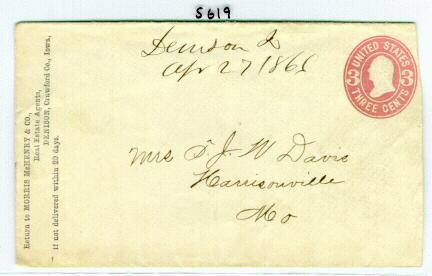 5619
Denison Io
Apr 27 1866
UNITED STATES
3 3
THREE CENTS
Mrs T. J. W Davis
Harrisonville
Mo
Return to MORRIS McHENRY & CO.,
Real Estate Agents,
DENISON, Crawford Co., Iowa,
If not delivered within 20 days.